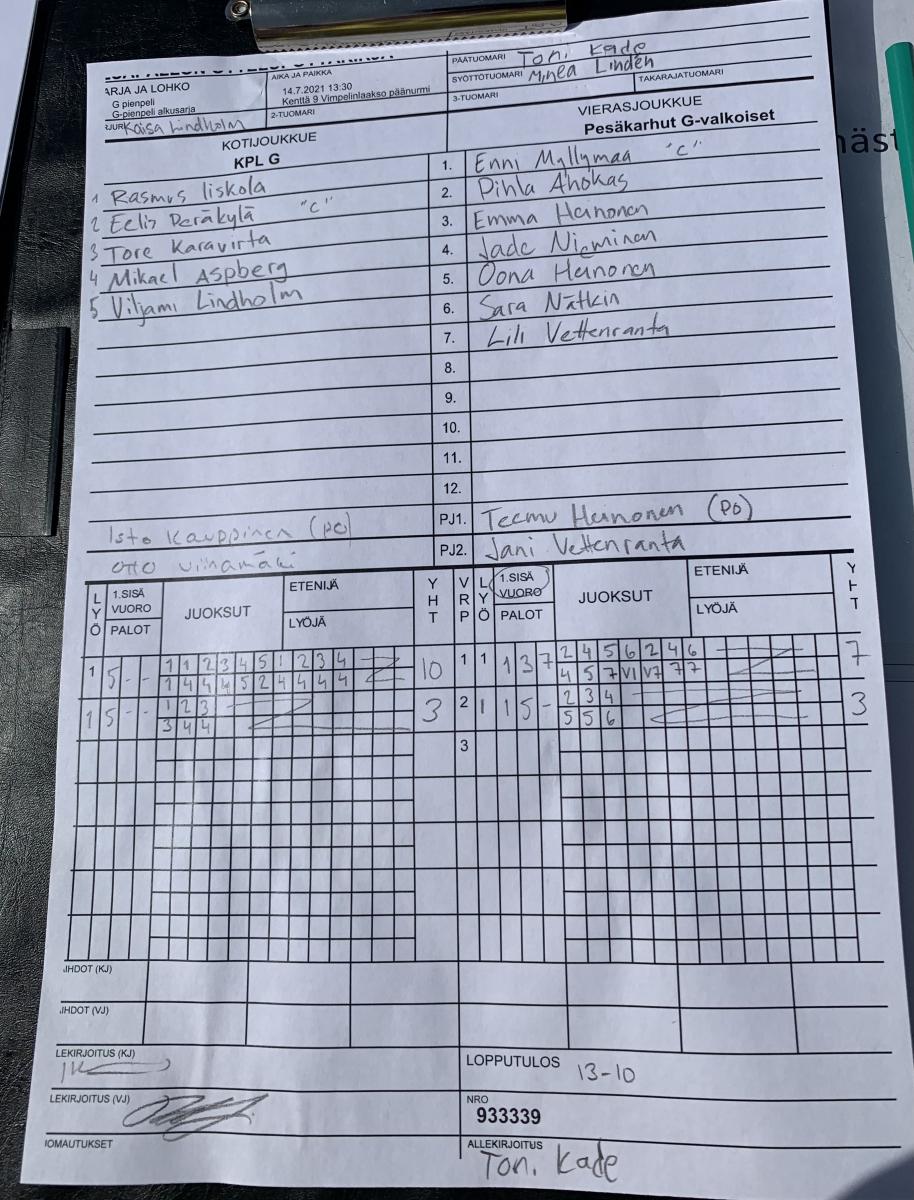 PÄÄTUOMARI Toni Kade
ARJA JA LOHKO AIKA JA PAIKKA SYÖTTÖTUOMARI Minea Linden
G pienpeli 14.7.2021 13:30 3-TUOMARI TAKARAJATUOMARI
G-pienpeli alkusarja Kenttä 9 Vimpelinlaakso päänurmi
Kaisa Lindholm 2-TUOMARI
KOTIJOUKKUE VIERASJOUKKUE
KPL G Pesäkarhut G-valkoiset
1 Rasmus Iiskola 1. Enni Myllymaa "C"
2 Eelis Peräkylä "C" 2. Pihla Ahokas
3 Tore Karavirta 3. Emma Heinonen
4 Mikael Aspberg 4. Jade Nieminen
5 Viljami Lindholm 5. Oona Heinonen
6. Sara Nätkin
7. Lili Vettenranta
8.
9.
10.
11.
12.
Isto Kauppinen (PO) PJ1. Teemu Heinonen (PO)
Otto Viinamäki PJ2. Jani Vettenranta
LYÖ 1.SISÄ VUORO PALOT JUOKSUT ETENIJÄ LYÖJÄ YHT VRP LYÖ 1.SISÄ VUORO PALOT JUOKSUT ETENIJÄ LYÖJÄ YHT
1 5 - - 1 1 2 3 4 5 1 2 3 4 10 1 1 1 3 7 2 4 5 6 2 4 6 7
1 4 4 4 5 2 4 4 4 4 4 5 7 V1 V7 7 7
1 5 - - 1 2 3 3 2 1 1 5 - 2 3 4 3
3 4 4 5 5 6
3
IHDOT (KJ)
IHDOT (VJ)
LEKIRJOITUS (KJ) LOPPUTULOS 13-10
LEKIRJOITUS (VJ) NRO
933339
IOMAUTUKSET ALLEKIRJOITUS
Toni Kade